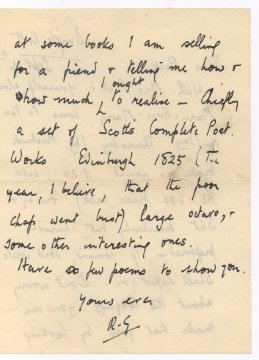 at some books I am selling
for a friend & telling me how &
how much I ought to realise – Chiefly
a set of Scott's Complete Poet.
Works Edinburgh 1825 (the
year, I believe, that the poor
chap went bust) large octavo, &
some other interesting ones.
Have so few poems to show you.
Yours ever
R-G